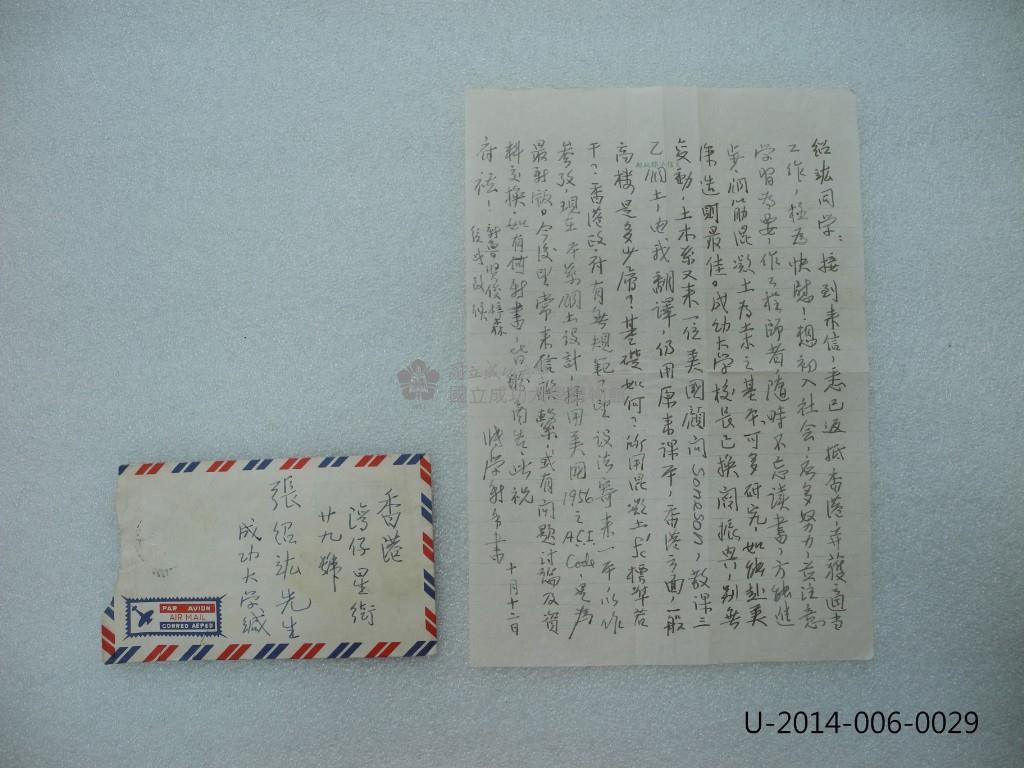 紹竑同学：接到来信，悉已返抵香港，并獲適当
工作，極為快慰！想初入社会，应多努力，並注意
学習為要，作工程師者，隨時不忘读書，方能進
步，鋼筋混凝土為土木之基本，可多研究，如能赴美
深造則最佳。成功大学校長已换閻振興，别無
变動，土木系又来一位美國顧问Soneson，教课三
乙鋼土，由我翻譯，仍用原来课本，香港方面一般
高楼是多少層？基礎如何？所用混凝土fc'標準若
干？香港政府有無規範？望设法寄来一本以作
参攷，现在本系鋼土设計，採用美國1956之ACI Code，是為
最新版。今後望常来信联繫，或有问題討論及資
料交换，如有何新書，皆能函告，此祝
府祺！
十月十二日
香港
灣仔星街
廿九號
張紹竑先生
成功大学緘
PAR AVION
AIR MAIL
CORREO AEREO
國立成功大學博物館
U-2014-006-0029